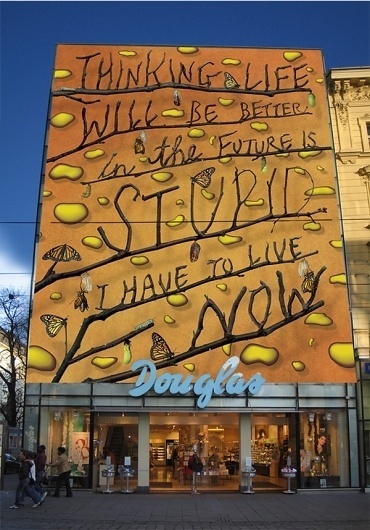 THINKING LIFE
WILL BE BETTER
in the FUTURE IS
STUPID
I HAVE TO LIVE
NOW
Douglas